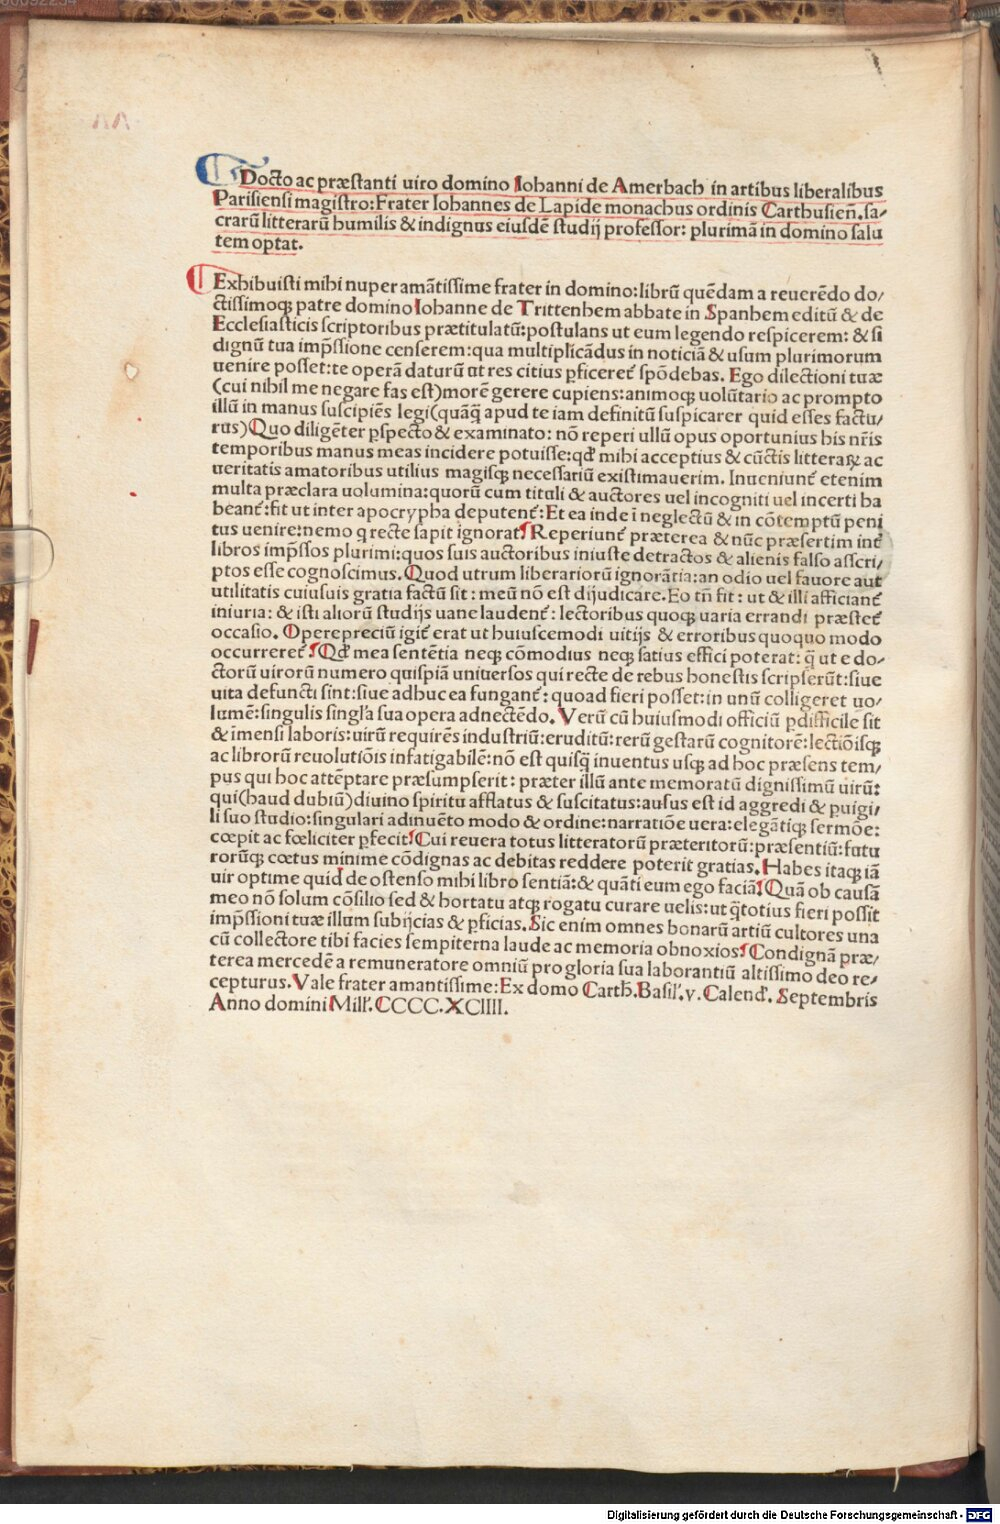 Docto ac præstanti uiro domino Iohanni de Amerbach in artibus liberalibus
Parisiensi magistro: Frater Iohannes de Lapide monachus ordinis Carthusieñ. sa/
crarũ litterarũ humilis & indignus eiusdẽ studij professor: plurimã in domino salu
tem optat.
Exhibuisti mihi nuper amãtissime frater in domino: librũ quẽdam a reuerẽdo do/
ctissimoqꝫ patre domino Iohanne de Trittenhem abbate in Spanhem editũ & de
Ecclesiasticis scriptoribus prætitulatũ: postulans ut eum legendo respicerem: & si
dignũ tua imp̃ssione censerem: qua multiplicãdus in noticiã & usum plurimorum
uenire posset: te operã daturũ ut res citius ꝑficeret̃ spõdebas. Ego dilectioni tuæ
(cui nihil me negare fas est) morẽ gerere cupiens: animoqꝫ uolũtario ac prompto
illũ in manus suscipiẽs legi (quãq̃ apud te iam definitũ suspicarer quid esses factu/
rus) Quo diligẽter ꝑspecto & examinato: nõ reperi ullũ opus oportunius his nr̃is
temporibus manus meas incidere potuisse: qđ mihi acceptius & cũctis litteraꝝ ac
ueritatis amatoribus utilius magisqꝫ necessariũ existimauerim. Inueniunt̃ etenim
multa præclara uolumina: quorũ cum tituli & auctores uel incogniti uel incerti ha
beant̃: fit ut inter apocrypha deputent̃: Et ea inde ĩ neglectũ & in cõtemptũ peni
tus uenire: nemo q recte sapit ignorat. Reperiunt̃ præterea & nũc præsertim int̃
libros imp̃ssos plurimi: quos suis auctoribus iniuste detractos & alienis falso asscri/
ptos esse cognoscimus. Quod utrum liberariorũ ignorãtia: an odio uel fauore aut
utilitatis cuiusuis gratia factũ sit: meũ nõ est dijudicare. Eo tñ fit: ut & illi afficiant̃
iniuria: & isti aliorũ studijs uane laudent̃: lectoribus quoqꝫ uaria errandi præstet̃
occasio. Operepreciũ igit̃ erat ut huiuscemodi uitijs & erroribus quoquo modo
occurreret̃. Qđ mea sentẽtia neqꝫ cõmodius neqꝫ satius effici poterat: q̃ ut e do/
ctorũ uirorũ numero quispiã uniuersos qui recte de rebus honestis scripserũt: siue
uita defuncti sint: siue adhuc ea fungant̃: quoad fieri posset: in unũ colligeret uo/
lumẽ: singulis singl'a sua opera adnectẽdo. Verũ cũ huiusmodi officiũ ꝑdifficile sit
& ĩmensi laboris: uirũ requirẽs industriũ: eruditũ: rerũ gestarũ cognitorẽ: lectiõisqꝫ
ac librorũ reuolutiõis infatigabilẽ: nõ est quisq̃ inuentus usqꝫ ad hoc præsens tem/
pus qui hoc attẽptare præsumpserit: præter illũ ante memoratũ dignissimũ uirũ:
qui (haud dubiũ) diuino spiritu afflatus & suscitatus: ausus est id aggredi & ꝑuigi/
li suo studio: singulari adinuẽto modo & ordine: narratiõe uera: elegãtiqꝫ sermõe:
cœpit ac fœliciter ꝑfecit. Cui reuera totus litteratorũ præteritorũ: præsentiũ: futu
rorũqꝫ cœtus minime cõdignas ac debitas reddere poterit gratias. Habes itaqꝫ iã
uir optime quid de ostenso mihi libro sentiã: & quãti eum ego faciã. Quã ob causã
meo nõ solum cõsilio sed & hortatu atqꝫ rogatu curare uelis: ut q̃totius fieri possit
imp̃ssioni tuæ illum subijcias & ꝑficias. Sic enim omnes bonarũ artiũ cultores una
cũ collectore tibi facies sempiterna laude ac memoria obnoxios. Condignã præ/
terea mercedẽ a remuneratore omniũ pro gloria sua laborantiũ altissimo deo re/
cepturus. Vale frater amantissime: Ex domo Carth̃. Basil'. v. Calend'. Septembris
Anno domini Mill'. CCCC. XCIIII.
Digitalisierung gefördert durch die Deutsche Forschungsgemeinschaft - DFG